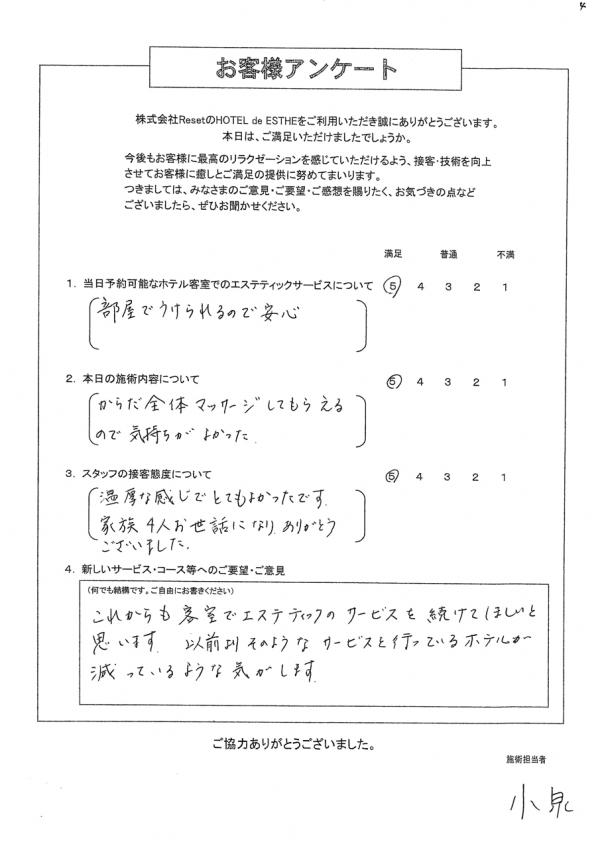 4
お客様アンケート
株式会社ResetのHOTEL de ESTHEをご利用いただき誠にありがとうございます。
本日は、ご満足いただけましたでしょうか。
今後もお客様に最高のリラクゼーションを感じていただけるよう、接客・技術を向上
させてお客様に癒しとご満足の提供に努めてまいります。
つきましては、みなさまのご意見・ご要望・ご感想を賜りたく、お気づきの点など
ございましたら、ぜひお聞かせください。
満足 普通 不満
1. 当日予約可能なホテル客室でのエステティックサービスについて 5 4 3 2 1
部屋でうけられるので安心
2. 本日の施術内容について 5 4 3 2 1
からだ全体マッサージしてもらえる
ので気持ちがよかった.
3. スタッフの接客態度について 5 4 3 2 1
温厚な感じでとてもよかったです.
家族4人お世話になり、ありがとう
ございました.
4. 新しいサービス・コース等へのご要望・ご意見
(何でも結構です。ご自由にお書きください)
これからも客室でエステティックのサービスを続けてほしいと
思います. 以前よりそのようなサービスを行っているホテルが
減っているような気がします.
ご協力ありがとうございました。
施術担当者
小泉